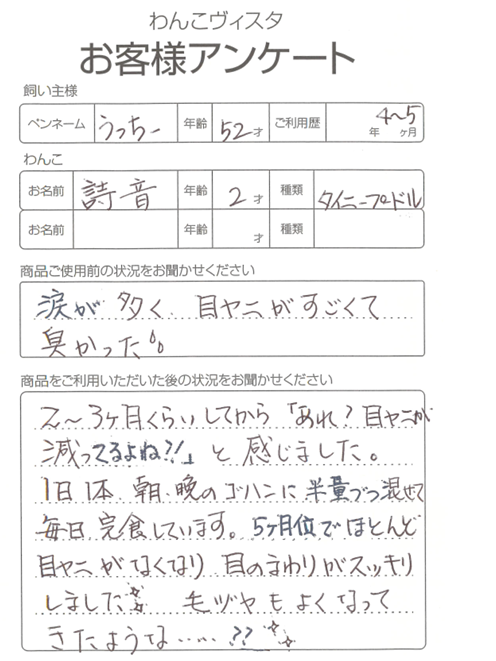 わんこヴィスタ
お客様アンケート
飼い主様
ペンネーム うっちー 年齢 52才 ご利用歴 4〜5 年 ヶ月
わんこ
お名前 詩音 年齢 2才 種類 タイニープードル
お名前 年齢 才 種類
商品ご使用前の状況をお聞かせください
涙が多く、目ヤニがすごくて
臭かった
商品をご利用いただいた後の状況をお聞かせください
2〜3ヶ月くらいしてから「あれ?目ヤニが
減ってるよね?!」と感じました。
1日1本、朝・晩のゴハンに半量づつ混せて
毎日完食しています。5ヶ月位でほとんど
目ヤニがなくなり、目のまわりがスッキリ
しました 毛ヅヤもよくなって
きたような……??